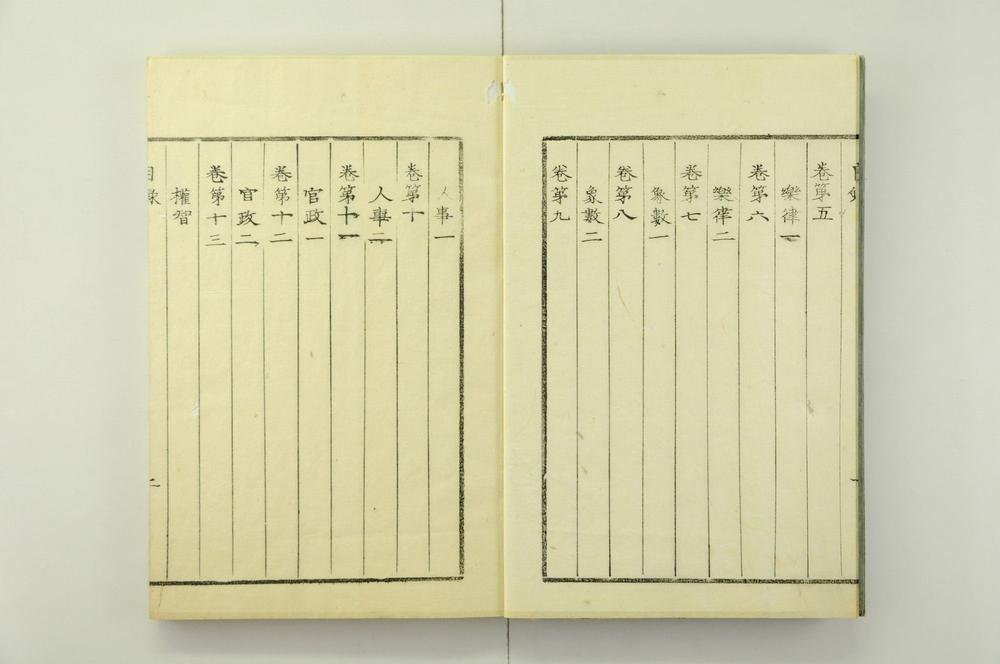 卷第五
樂律一
卷第六
樂律二
卷第七
象數一
卷第八
象數二
卷第九
人事一
卷第十
人事二
卷第十一
官政一
卷第十二
官政二
卷第十三
權智
目錄
二